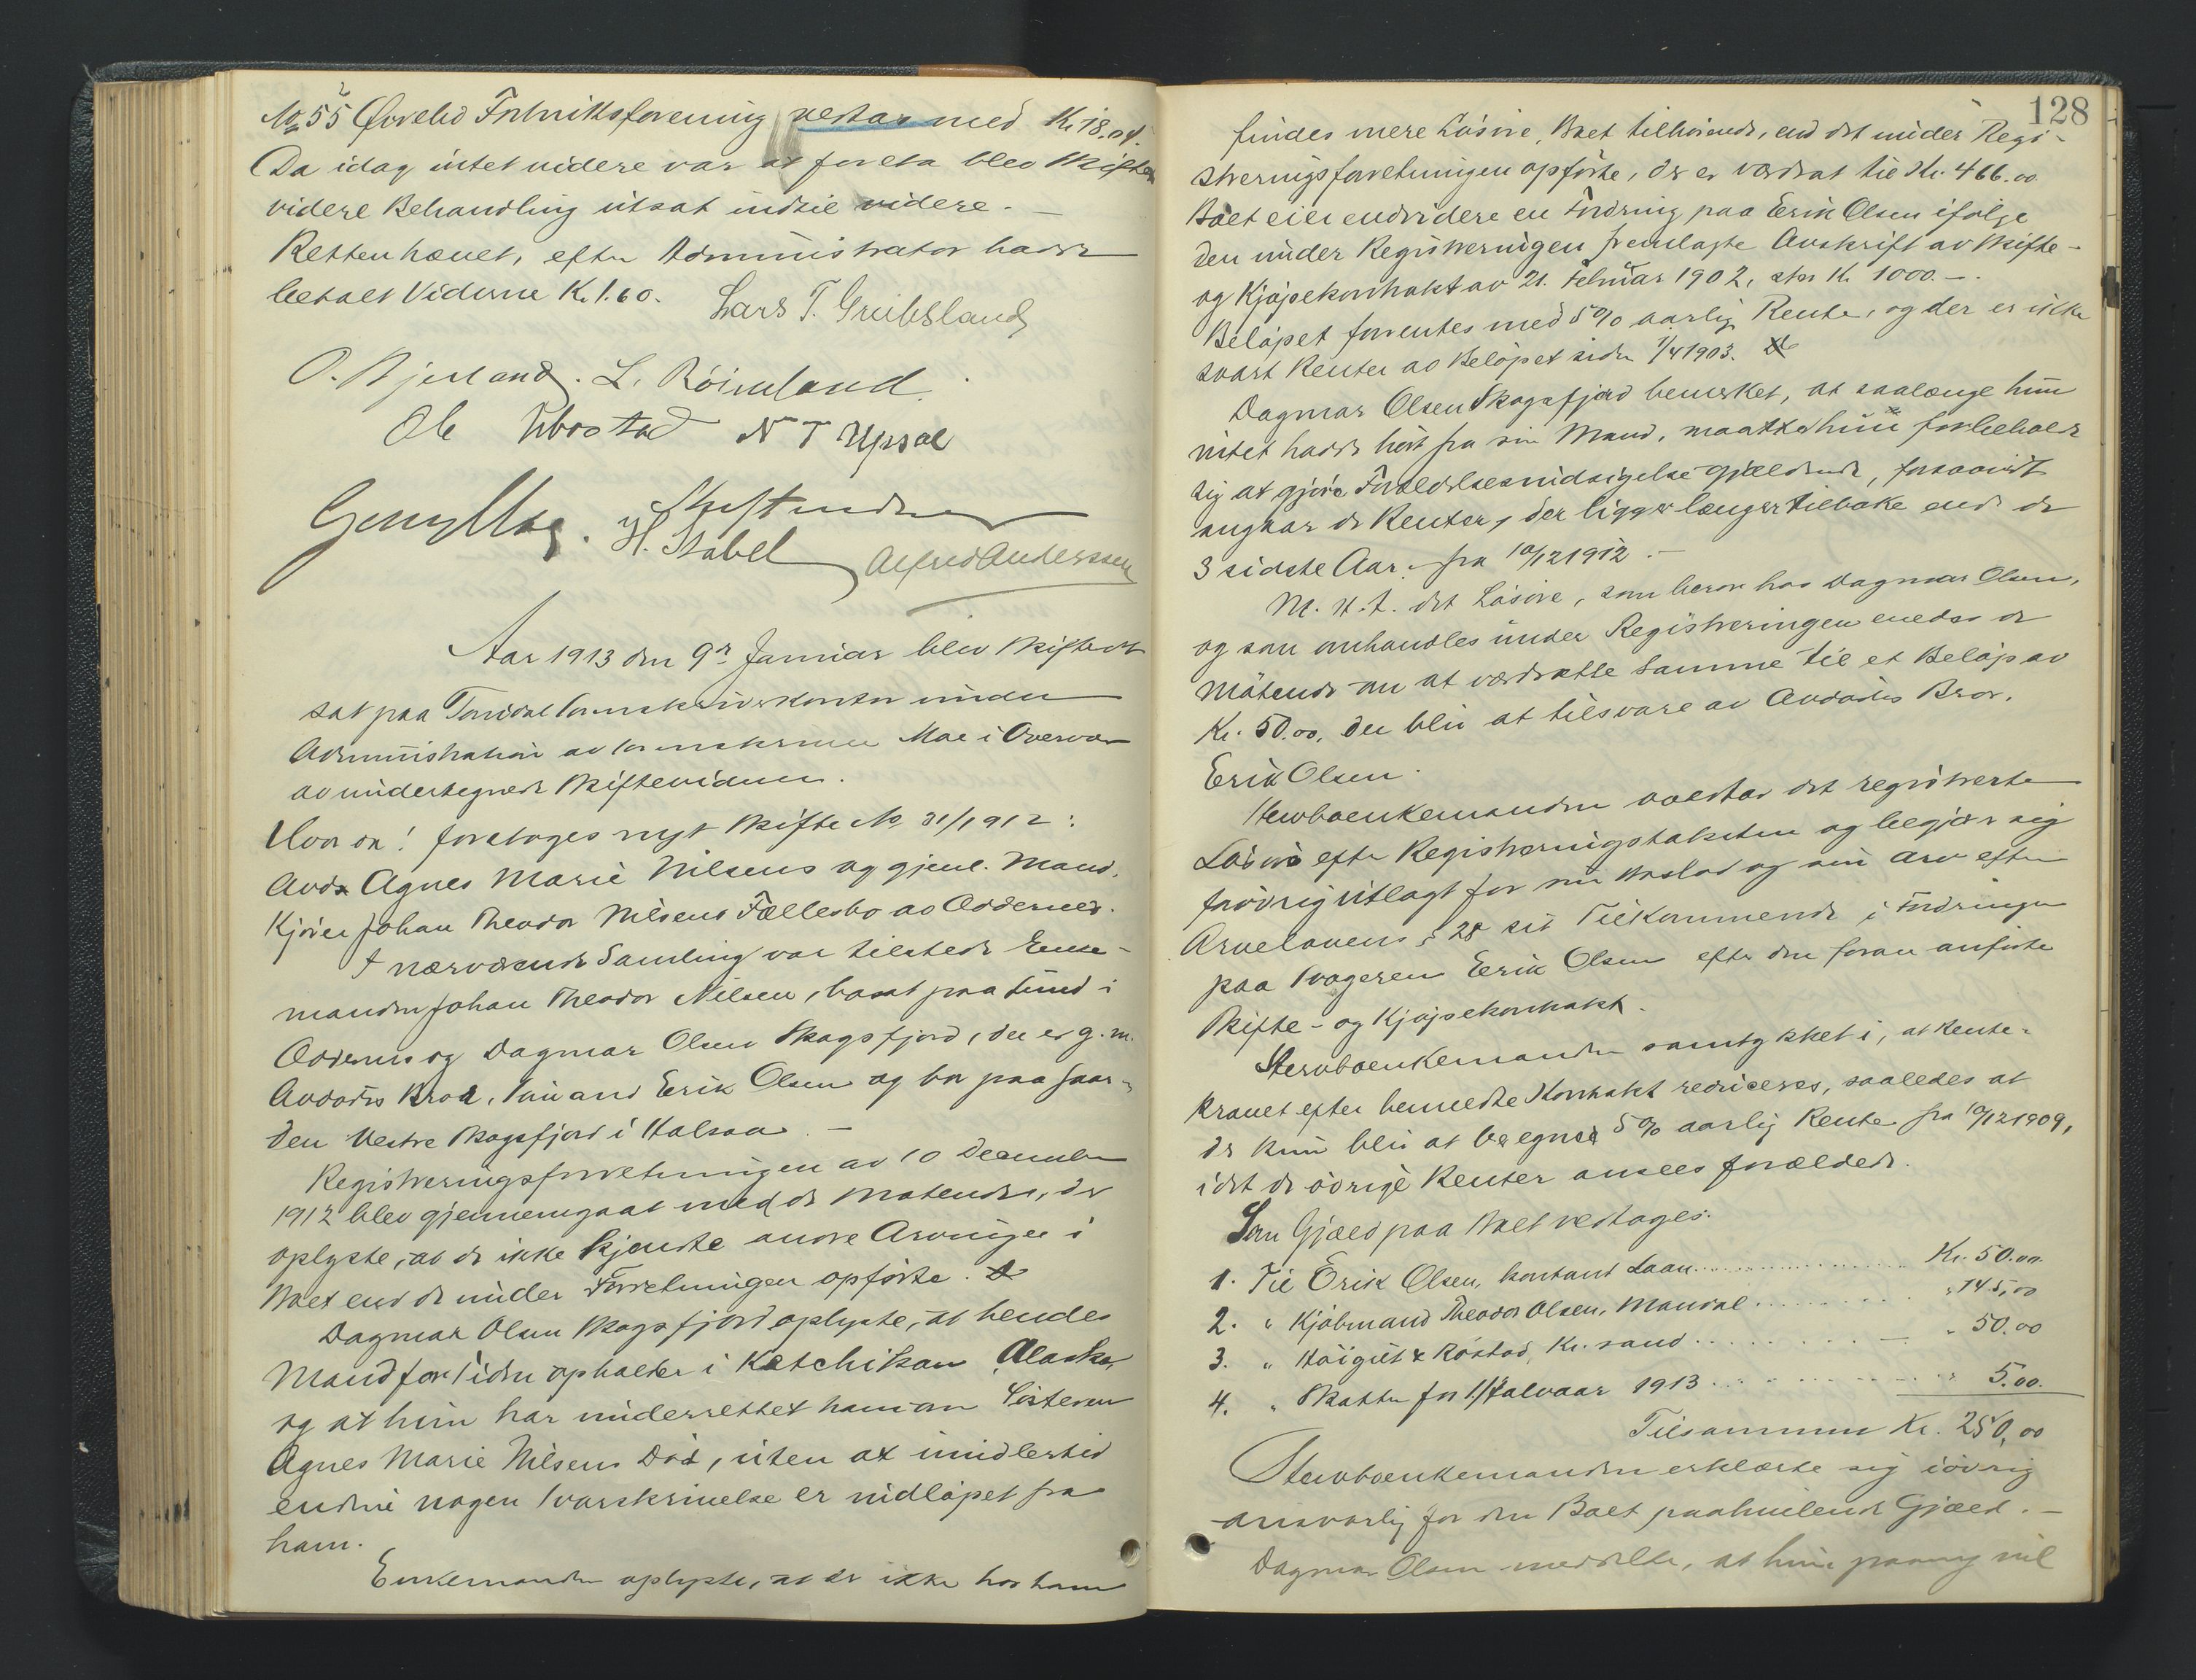 No 55 Øvrebø Forbruksforening vedtas med Kr 18.04.
Da idag intet videre var at foreta blev Skiftets
videre Behandling utsat indtil videre. —
Retten hævet, efter Administrator hadde
betalt Vidnerne Kr. 1.60. Lars T. Greibsland
O. Bjerland. L. Röinland.
Ole Ubostad N T Upsal
H. Stabel Alfred Anderssen
Aar 1913 den 9de Januar blev Skifteret
sat paa Torridal Sorenskriverkontor under
Administration av Sorenskriveren Moe i Overvær
av undertegnede Skiftevidner.
Hvor da! foretoges nyt Skifte No 31/1912:
Avdø Agnes Marie Nilsens og gjenl. Mand,
Kjører Johan Theodor Nilsens Fællesbo av Oddernes.
I nærværende Samling var tilstede Enke-
manden Johan Theodor Nilsen, bosat paa Lund i
Oddernes og Dagmar Olsen Skogsfjord, der er g. m.
Avdødes Bror, Sømand Erik Olsen og bor paa Gaar-
den Vestre Skogsfjord i Halsaa. —
Registreringsforretningen av 10 December
1912 blev gjennemgaat med de Møtende, der
oplyste, at de ikke kjendte andre Arvinger i
Boet end de under Forretningen opførte.
Dagmar Olsen Skogsfjord oplyste, at hendes
Mand for Tiden opholder i Ketchikan Alaska,
og at hun har underrettet ham om Søsteren
Agnes Marie Nilsens Død, uten at imidlertid
endnu nogen Svarskrivelse er indløpet fra
ham.
Enkemanden oplyste, at der ikke hos ham
128
findes mere Løsøre, Boet tilhørende, end det under Regi-
streringsforretningen opførte, der er værdsat til Kr. 466.00
Boet eier endvidere en Fordring paa Erik Olsen ifølge
den under Registreringen fremlagte Avskrift av Skifte-
og Kjøpekontrakt av 21. Februar 1902, stor Kr. 1000.—.
Beløpet forrentes med 5 % aarlig Rente, og der er ikke
svart Renter av Beløpet siden 1/4 1903.
Dagmar Olsen Skogsfjord bemerket, at saalænge hun
intet hadde hørt fra sin Mand, maatte hun forbeholde
sig at gjøre Forældelsesindsigelse gjældende, forsaavidt
angaar de Renter, der ligger længer tilbake end de
3 sidste Aar fra 10/12 1912. —
M. H. t. det Løsøre, som beror hos Dagmar Olsen,
og som omhandles under Registreringen enedes de
Møtende om at værdsætte samme til et Beløp av
Kr. 50.00, der blir at tilsvare av Avdødes Bror,
Erik Olsen.
Stervboenkemanden overtar det registrerte
Løsøre efter Registreringstaksten og begjær sig
forøvrig utlagt for sin Boslod og sin Arv efter
Arvelovens § 28 sit Tilkommende i Fordringen
paa Svogeren Erik Olsen efter den foran anførte
Skifte- og Kjøpekontrakt.
Stervboenkemanden samtykket i, at Rente-
kravet efter bemeldte Kontrakt reduceres, saaledes at
der kun blir at beregne 5 % aarlig Rente fra 10/12 1909,
idet de øvrige Renter ansees forældede.
Som Gjæld paa Boet vedtages:
1. Til Erik Olsen, kontant Laan .......... Kr. 50.00
2. " Kjøbmand Theodor Olsen, Mandal .......... " 145,00
3. " Röstad, Kr.sand .......... " 50.00
4. " Skatter for 1/ Halvaar 1913 .......... " 5.00
Tilsammen Kr. 250,00
Stervboenkemanden erklærte sig iøvrig
ansvarlig for den Boet paahvilende Gjæld. —
Dagmar Olsen meddelte, at hun paany vil